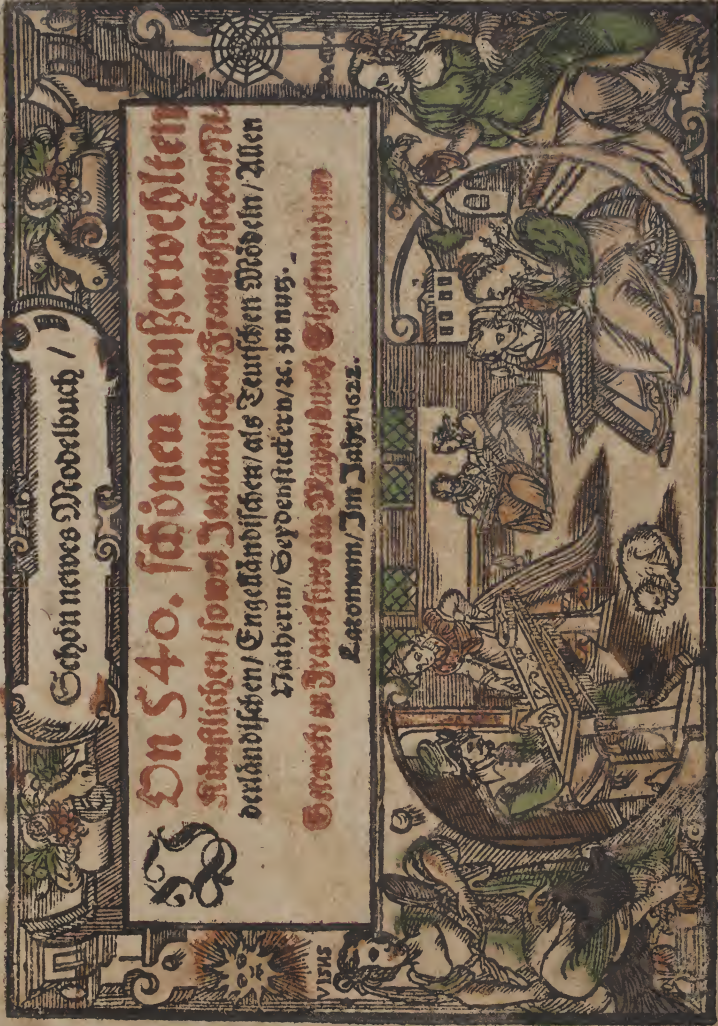 Schön newes Modelbuch /
Von 540. schönen außerwehlten
Künstlichen / sowol Italiänischen / Frantzösischen / Ni-
derländischen / Engelländischen / als Teutschen Mödeln / Allen
Nätherin / Seydenstickern / ꝛc. zu nutz.
Getruckt zu Franckfurt am Mayn / durch Sigismundum
Latomum / Im Jahr / 1622.
VISUS